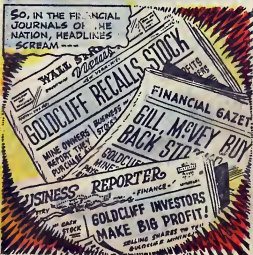 SO, IN THE FINANCIAL
JOURNALS OF THE
NATION, HEADLINES
SCREAM ---
WALL
News
GOLDCLIFF RECALLS STOCK
MINE OWNERS
REPORT
BUSINESS
STOCK
PROFITS
FINANCIAL GAZET
BILL McVEY
BACK
GOLDCLIFF
BUSINESS REPORTER
- FINANCE -
CASH
STOCK
GOLDCLIFF INVESTORS
MAKE BIG PROFIT!
SELLING SHARES TO
GOLDCLIFF